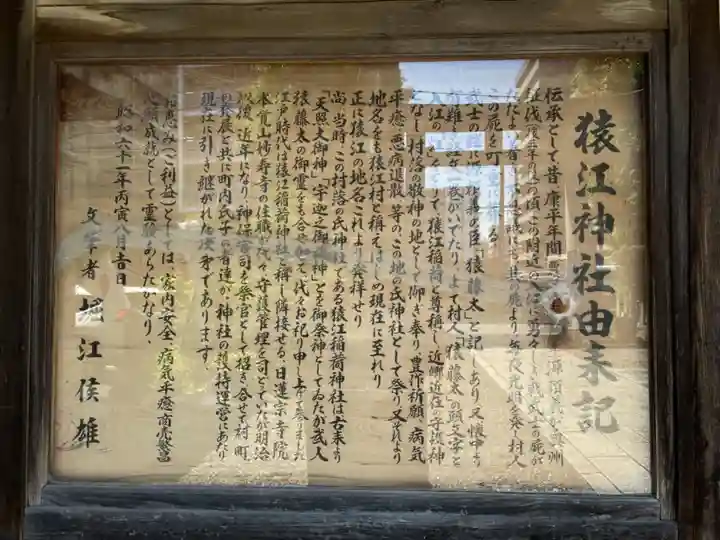 猿江神社由来記
伝承として昔康平年間
征伐 の頃この附近の入江に 武士の屍が
ただよい着き不思議にも其の屍より毎夜光明を発し村人
この屍を
武士の 義の臣「猿藤太」と記しあり又懐中より
いでたり、よって村人「猿藤太」の頭文字と
入江の をとりて猿江稲荷と尊称し近郷近在の守護神
となし村落の敬神の地として御き奉り豊作祈願、病気
平癒、悪病退散、等の、この地の氏神社として祭り又それより
地名をも猿江村と称えはじめ現在に至れり
正に猿江の地名これより発祥せり
尚、当時、この村落の氏神社である猿江稲荷神社は古来より
「天照大御神」「宇迦之御魂神」とを御祭神としてゐたが武人
猿藤太の御霊をも合せ 代々お記り申し上げて参りました
江戸時代は猿江稲荷神社と称し隣接せる、日蓮宗寺院
本覚山妙寿寺の住職が代々守護管理を司どっていたが明治
以後、近年になり神保宮司を祭官として招き合せて村町
の発展と共に町内氏子の有達が、神社の護持運営にあり
現在に引き継がれた次第であります。
御恵み(ご利益)としては、家内安全、病気平癒、商売繁盛
心願成就として霊験あらたかなり、
昭和六十一年丙寅八月吉日
文筆者 堀江候雄